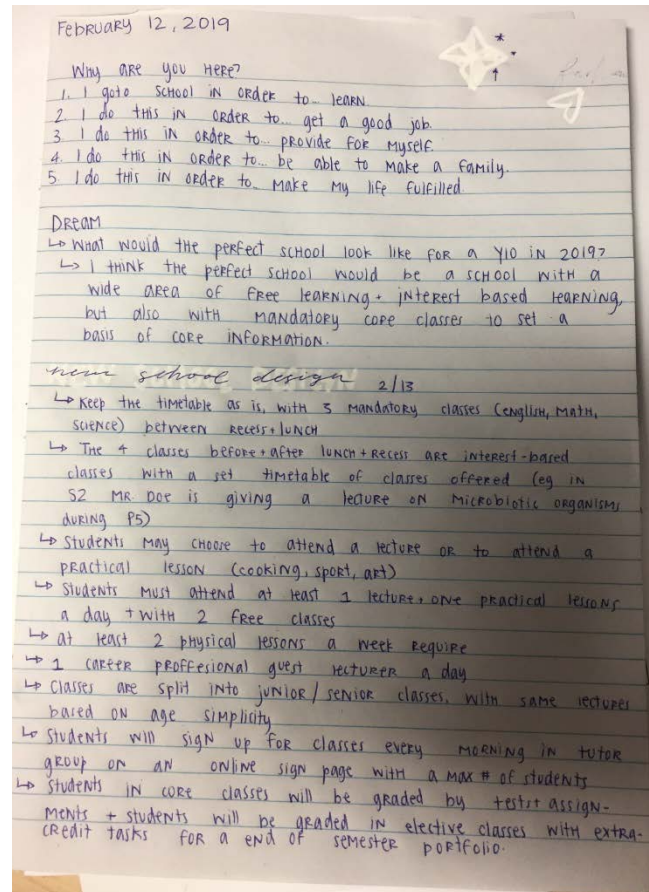 February 12, 2019
Why are you Here?
1. I goto school in order to... learn.
2 I do this in order to... get a good job.
3 I do this in order to... provide for myself.
4. I do this in order to... be able to make a family.
5. I do this in order to... make my life fulfilled.
Dream
↳ What would the perfect school look like for a Y10 in 2019?
↳ I think the perfect school would be a school with a
wide area of free learning + interest based learning,
but also with mandatory core classes to set a
basis of core information.
new school design 2/13
↳ Keep the timetable as is, with 3 mandatory classes (english, math,
science) between recess + lunch
↳ The 4 classes before + after lunch + recess are interest-based
classes with a set timetable of classes offered (eg in
S2 Mr. Doe is giving a lecture on microbiotic organisms
during P5)
↳ Students may choose to attend a lecture or to attend a
practical lesson (cooking, sport, art)
↳ Students must attend at least 1 lecture + one practical lessons
a day + with 2 free classes
↳ at least 2 physical lessons a week require
↳ 1 career proffesional guest lecturer a day
↳ Classes are split into junior/senior classes, with same lectures
based on age simplicity
↳ Students will sign up for classes every morning in tutor
group on an online sign page with a max # of students
↳ Students in core classes will be graded by tests + assign-
ments + students will be graded in elective classes with extra-
credit tasks for a end of semester portfolio.